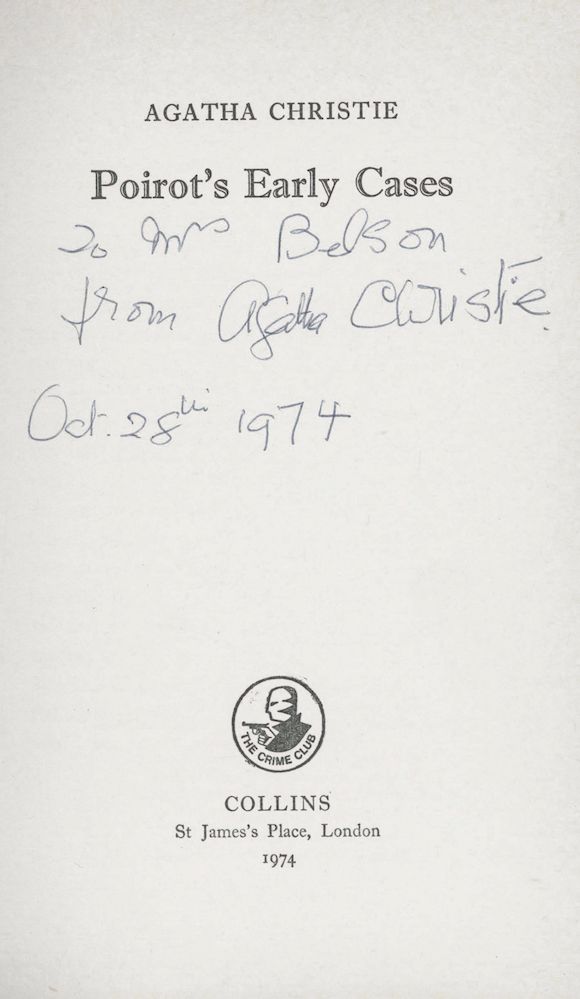 AGATHA CHRISTIE
Poirot's Early Cases
To Mrs Belson
from Agatha Christie.
Oct. 28th 1974
THE CRIME CLUB
COLLINS
St James's Place, London
1974